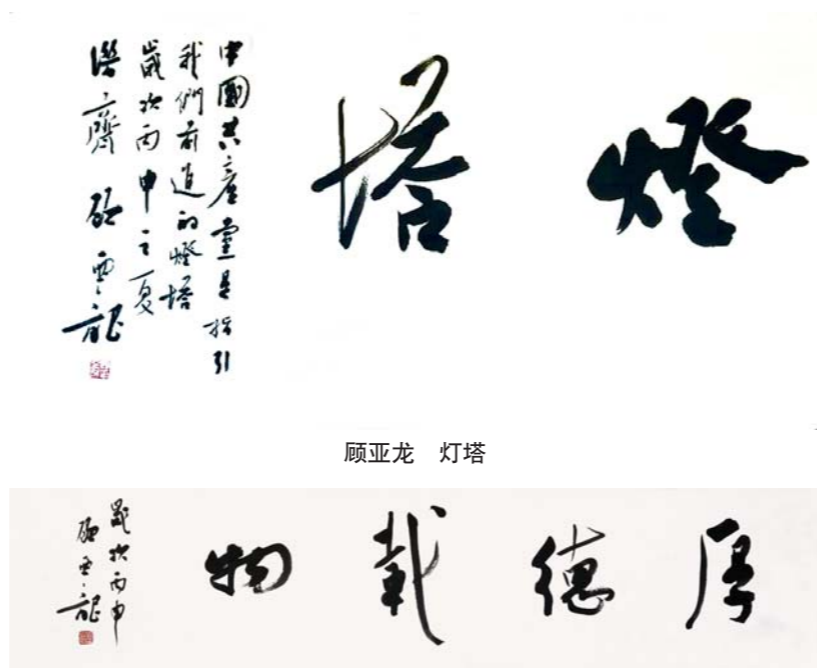 燈塔
中國共產黨是指引
我們前進的燈塔
歲次丙申之夏
潛齋 顧亞龍
顾亚龙　灯塔
厚德載物
歲次丙申
顧亞龍